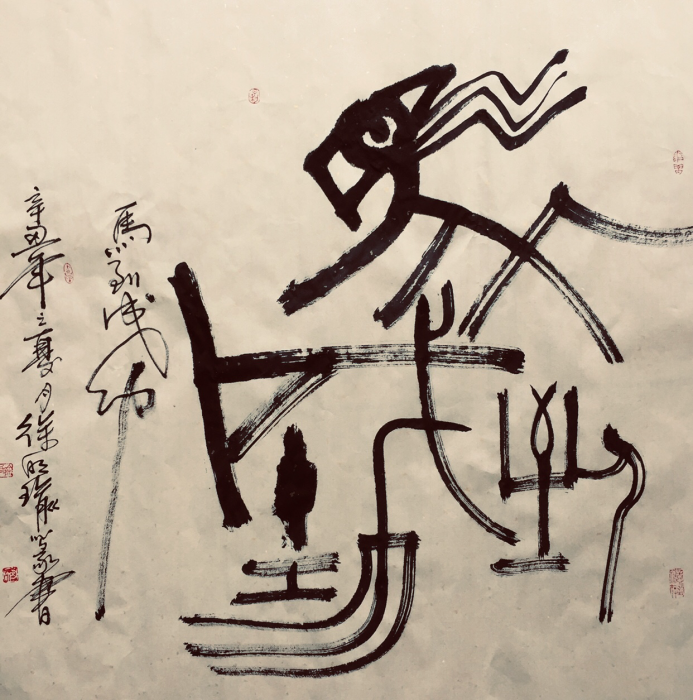 馬到成功
馬到成功
辛丑年之夏月徐明篆書